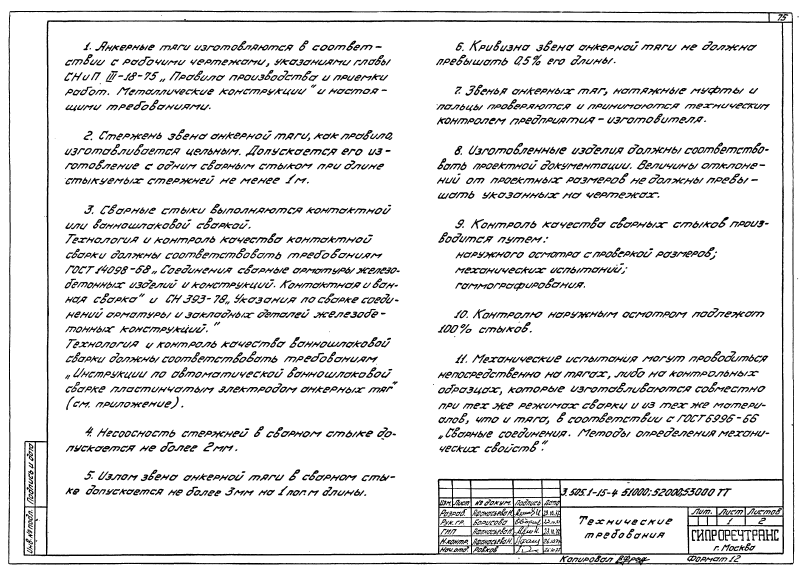 75
1. Анкерные тяги изготовляются в соответ-
ствии с рабочими чертежами, указаниями главы
СНиП III-18-75 „Правила производства и приемки
работ. Металлические конструкции" и настоя-
щими требованиями.
2. Стержень звена анкерной тяги, как правило,
изготавливается цельным. Допускается его из-
готовление с одним сварным стыком при длине
стыкуемых стержней не менее 1м.
3. Сварные стыки выполняются контактной
или ванношлаковой сваркой.
Технология и контроль качества контактной
сварки должны соответствовать требованиям
ГОСТ 14098-68 „Соединения сварные арматуры железо-
бетонных изделий и конструкций. Контактная и ван-
ная сварка" и СН 393-78 „Указания по сварке соеди-
нений арматуры и закладных деталей железобе-
тонных конструкций."
Технология и контроль качества ванношлаковой
сварки должны соответствовать требованиям
„Инструкции по автоматической ванношлаковой
сварке пластинчатым электродом анкерных тяг"
(см. приложение).
4. Несоосность стержней в сварном стыке до-
пускается не более 2мм.
5. Излом звена анкерной тяги в сварном сты-
ке допускается не более 3мм на 1 пог м длины.
6. Кривизна звена анкерной тяги не должна
превышать 0,5% его длины.
7. Звенья анкерных тяг, натяжные муфты и
пальцы проверяются и принимаются техническим
контролем предприятия-изготовителя.
8. Изготовленные изделия должны соответство-
вать проектной документации. Величины отклоне-
ний от проектных размеров не должны превы-
шать указанных на чертежах.
9. Контроль качества сварных стыков произ-
водится путем:
наружного осмотра с проверкой размеров;
механических испытаний;
гаммографирования.
10. Контролю наружным осмотром подлежат
100% стыков.
11. Механические испытания могут проводиться
непосредственно на тягах, либо на контрольных
образцах, которые изготавливаются совместно
при тех же режимах сварки и из тех же матери-
алов, что и тяга, в соответствии с ГОСТ 6996-66
„Сварные соединения. Методы определения механи-
ческих свойств".
Инв.№ подл. Подпись и дата
3.505.1-15-4 51000;52000;53000 ТТ
Изм. Лист № докум. Подпись Дата
Разраб.
Рук.гр. Борисова
ГИП
Н.контр.
Нач.отд. Рабков
Технические
требования
Лит. Лист Листов
1 2
ГИПРОРЕЧТРАНС
г. Москва
Копировал Формат 12